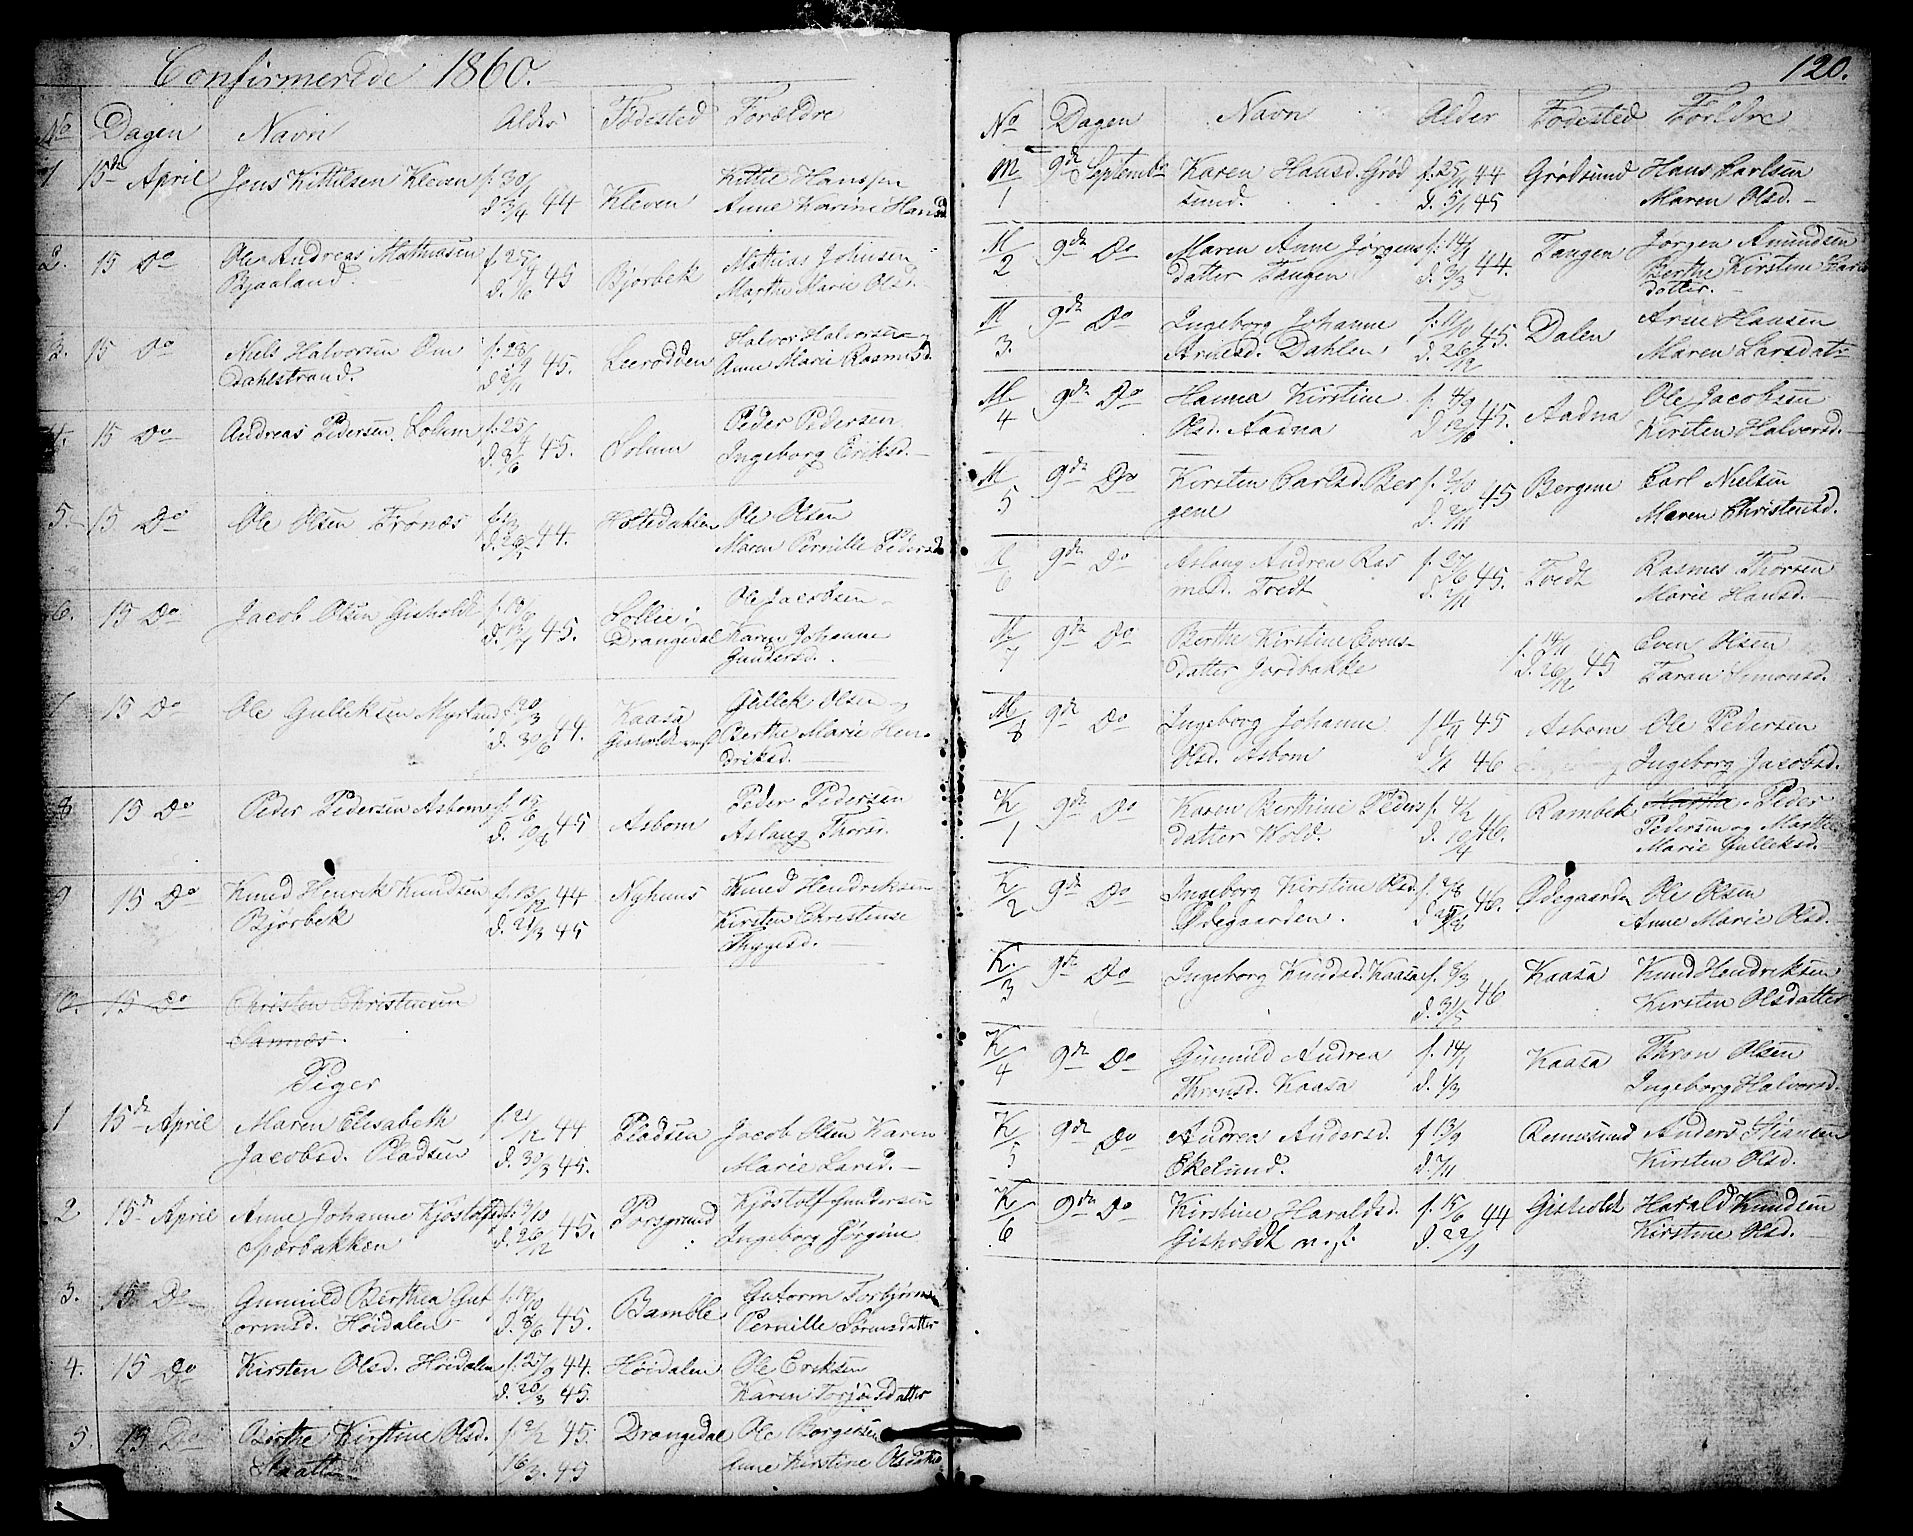 Confirmerede 1860.
No Dagen Navn Alder Fødested Forældre
1 15de April Jens Kittilsen Kleven f. 30/ Kleven Kittil Hanssen
d 8/4 44 Anne Karine Hansd
2. 15 Do Ole Andreas Mathiasen f. 25/4 45 Bjørbek Mathias Johnsen
Bjaaland. d. 1/6 Marthe Marie Olsd.
3. 15 Do Niels Halvorsen Om f. 28/9 45. Leerodden Halvor Halvorsen
Dahlstrand. d 2/11 Anne Marie Rasmusd.
4. 15 Do Andreas Pedersen Solum f. 25/4 45. Solum Peder Pedersen
d. 3/6 Ingeborg Eriksd.
5. 15 Do Ole Olsen Trønæs 44. Holtedalen Ole Olsen
Maren Pernille Pedersd
6. 15 Do Jacob Olsen Gisholdt 45. Lollie i Ole Jacobsen
Drangedal Karen Johanne
Gundersd.
7 15 Do Ole Gulleksen Myrland f 20/3 44. Kaasa Gullek Olsen
d. 30/6 Gisholdt Berthe Marie Hen
driksd.
8 15 Do Peder Pedersen Asbom 45 Asbom Peder Pedersen
d. 10/8 Aslaug Thorsd.
9 15 Do Knud Henrik Knudsen f. 13/12 44 Nyhuus Knud Hendriksen
Bjørbek d. 21/3 45 Kirsten Christense
Thygesd.
10. 15 Do Christen Christensen
Sannes.
Piger
1 15de April Maren Elisabeth f 21/12 44 Pladsen Jacob Olsen Karen
Jacobsd. Pladsen d. 30/3 45. Marie Larsd.
2 15de April Anne Johanne Kjøstolfsd. f. 9/10 45. Porsgrund Kjøstolf Gundersen
Spærbakken d. 26/12 Ingeborg Jørgine
3. 15 Do Gunnild Berthea Gut 45. Bamble Gutorm Torbjørns
ormsd. Høidalen d. 8/6 Pernille Sørensdatter
4. 15 Do Kirsten Olsd. Høidalen f. 27/9 44. Høidalen Ole Eriksen
d. 20/3 45. Karen Torjusdatter
5. 15 Do Berthe Kirstine Olsd. f. 2/2 45. Drangedal Ole Borgersen
16/3. 45 Anne Kirstine Olsdatter
120.
No Dagen Navn Alder Fødested Forældre
M/1 9de Septembr Karen Hansd. Grød f. 25/11 44 Grødsund Hans Carlsen
sund. d. 5/1 45 Maren Olsd.
M/2 9de Do Maren Anne Jørgens f. 14/1 44. Tangen Jørgen Amundsen
datter Tangen d. 3/3 Berthe Kirstine Lars
datter.
M/3. 9de Do Ingeborg Johanne 45. Dalen Arne Hansen
Arnesd. Dahlen d. 26/12 Maren Larsdat
M/4 9de Do Hanna Kirstine f. 4/9 45. Aadna Ole Jacobsen
Olsd. Aadna d. 12/10 Kirsten Halvorsd.
M/5 9de Do Kirsten Carlsd. Ber f. 2/10 45 Bergene Carl Nielsen
gene d. 2/11 Maren Christensd.
M/6 9de Do Aslaug Andrea Ras f. 27/6 45. Tvedt Rasmus Thorsen
musd. Tvedt d. 2/11 Marie Hansd.
M/7 9de Do Berthe Kirstine Evens f. 14/11 45 Even Olsen
datter Jordbakke d. 26/12 Taran Simonsd.
M/8 9de Do Ingeborg Johanne 45 Asbom Ole Pedersen
Olsd. Asbom d 1/1 46 Ingeborg Jacobsd.
K/1 9de Do Karen Berthine Peders f. 4/2 46. Rambek Marthe Peder
datter Wold. d. 10/4 Pedersen og Marthe
Marie Gulleksd.
K/2 9de Do Ingeborg Kirstine Olsd. f. 2/8 46. Ødegaarden Ole Olsen
Ødegaarden. Anne Marie Olsd.
K/3 9de Do Ingeborg Knudsd. Kaasa f. 9/3 46 Kaasa Knud Hendriksen
d. 31/5 Kirsten Olsdatter
K/4 9de Do Gunnild Andrea f. 14/1 Kaasa Thron Olsen
Thronsd. Kaasa d. 1/3 Ingeborg Halvorsd.
K/5 9de Do Andrea Andersd. f 13/9 Rønesund Anders Stiansen
Ekelund. d. 7/11 Kirsten Olsd.
K/6 9de Do Kirstine Haraldsd. f. 15/6 44 Gisholdt Harald Knudsen
Gisholdt n. f. d. 22/9 Kirstine Olsd.